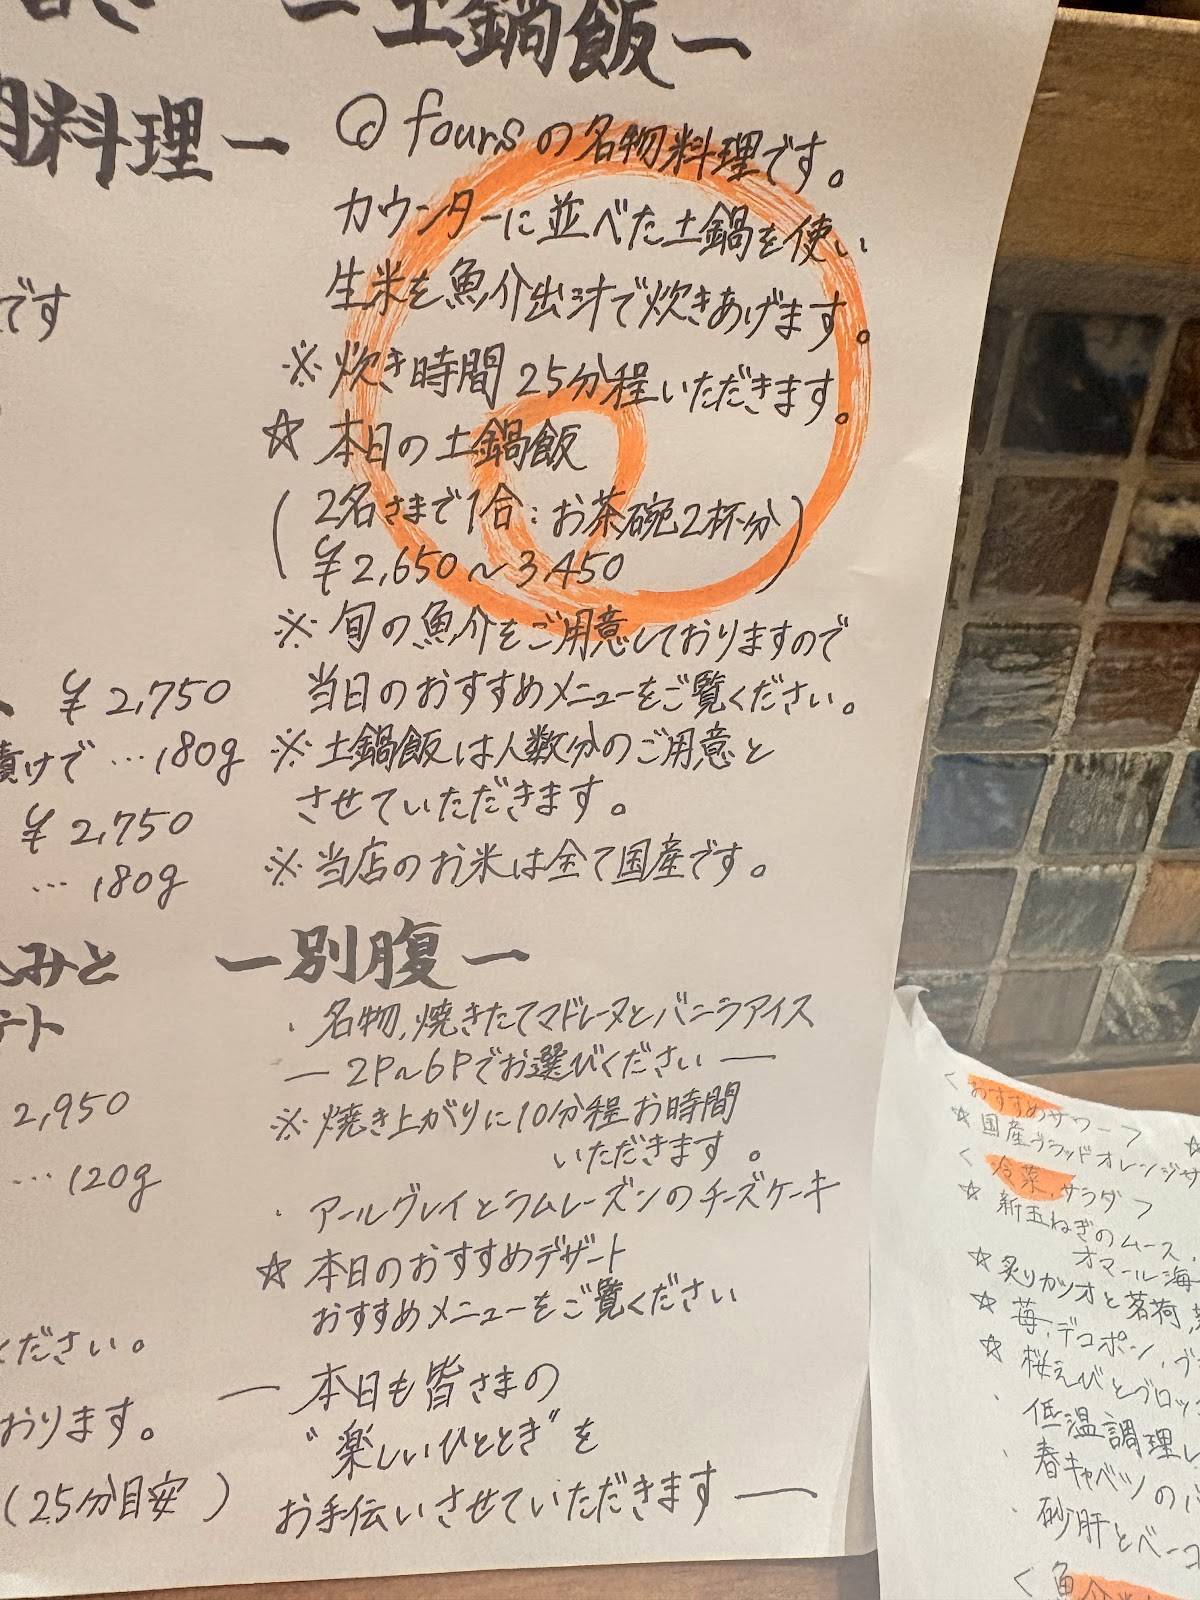 一土鍋飯一
◎ foursの名物料理です。
カウンターに並べた土鍋を使い
生米を魚介出汁で炊きあげます。
※炊き時間25分程いただきます。
☆本日の土鍋飯
(2名さまで1合:お茶碗2杯分)
¥2,650〜3,450
※旬の魚介をご用意しておりますので
当日のおすすめメニューをご覧ください。
※土鍋飯は人数分のご用意と
させていただきます。
※当店のお米は全て国産です。
一別腹一
・名物,焼きたてマドレーヌとバニラアイス
—2P〜6Pでお選びください—
※焼き上がりに10分程お時間
いただきます。
・アールグレイとラムレーズンのチーズケーキ
☆本日のおすすめデザート
おすすめメニューをご覧ください
—本日も皆さまの
“楽しいひととき”を
お手伝いさせていただきます—
料理一
です
¥2,750
漬けで…180g
¥2,750
…180g
みと
ート
2,950
…120g
ください。
おります。
(25分目安)
<おすすめサワー>
☆国産ブラッドオレンジサ
<冷菜,サラダ>
☆新玉ねぎのムース,
オマール海
☆炙りカツオと茗荷,
☆苺,デコポン,ブ
☆桜えびとブロッ
・低温調理し
・春キャベツの
・砂肝とベーコ
<魚介